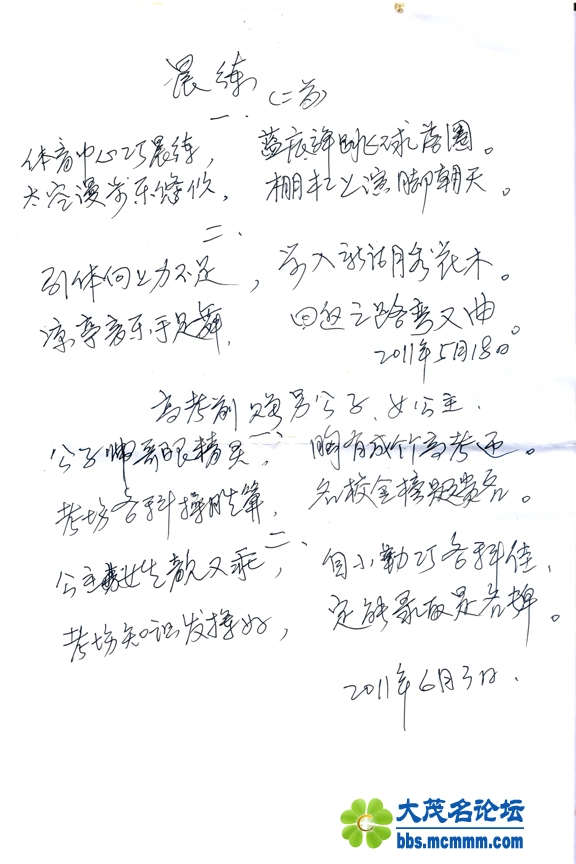 晨练(二首)
一.
体育中心巧晨练, 蓝底弹跳球落圈。
太空漫步乐悠悠, 棚杠上演脚朝天。
二.
引体向上力不足, 步入新湖月秀花木。
凉亭音乐手足舞, 回返之路弯又曲。
2011年5月18日
高考前赠男公子、女公主.
一、
公子帅哥眼精灵, 胸有成竹高考迎。
考场各科操胜算, 名校金榜题贵名。
二、
公主女生靓又乖, 自小勤巧各科佳,
考场知识发挥好, 定能录取是名牌。
2011年6月3日.
大茂名论坛
bbs.mcmmm.com